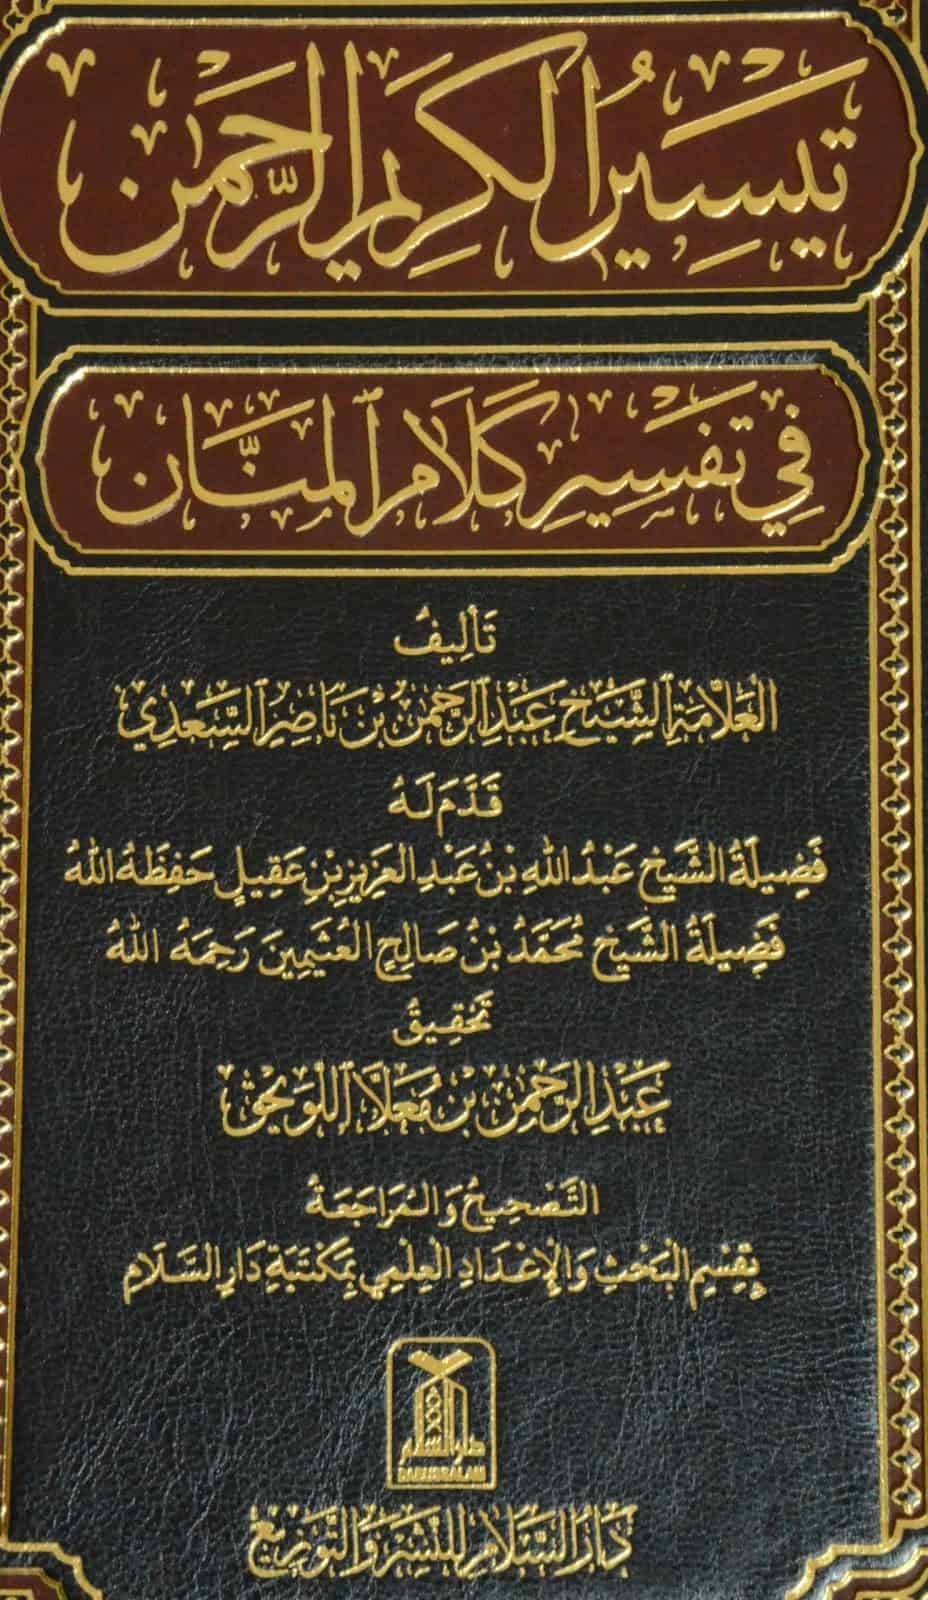 تَيسِيرُ الكَرِيمِ الرَّحمٰن
فِي تَفسِيرِ كَلَامِ المَنَّان
تَأليفُ
العَلَّامَةِ الشَّيخ عَبدِ الرَّحمٰن بْن نَاصِر السَّعدِي
قَدَّمَ لَهُ
فَضِيلَةُ الشَّيخ عَبْدُ اللهِ بنُ عَبْدِ العَزِيزِ بنِ عَقِيلٍ حَفِظَهُ اللهُ
فَضِيلَةُ الشَّيخ مُحَمَّدُ بنُ صَالِحٍ العُثَيمِينَ رَحِمَهُ اللهُ
تَحقِيقُ
عَبْدِ الرَّحمٰن بن مُعَلَّا اللّوَيحِق
التَّصْحِيحُ وَالمُرَاجَعَةُ
بِقِسْمِ البَحْثِ وَالإعْدَادِ العِلْمِي بِمَكْتَبَةِ دَارِ السَّلَامِ
دار السلام
DARUSSALAM
دَارُ السَّلَامِ لِلنَّشرِ وَالتَّوزِيعِ